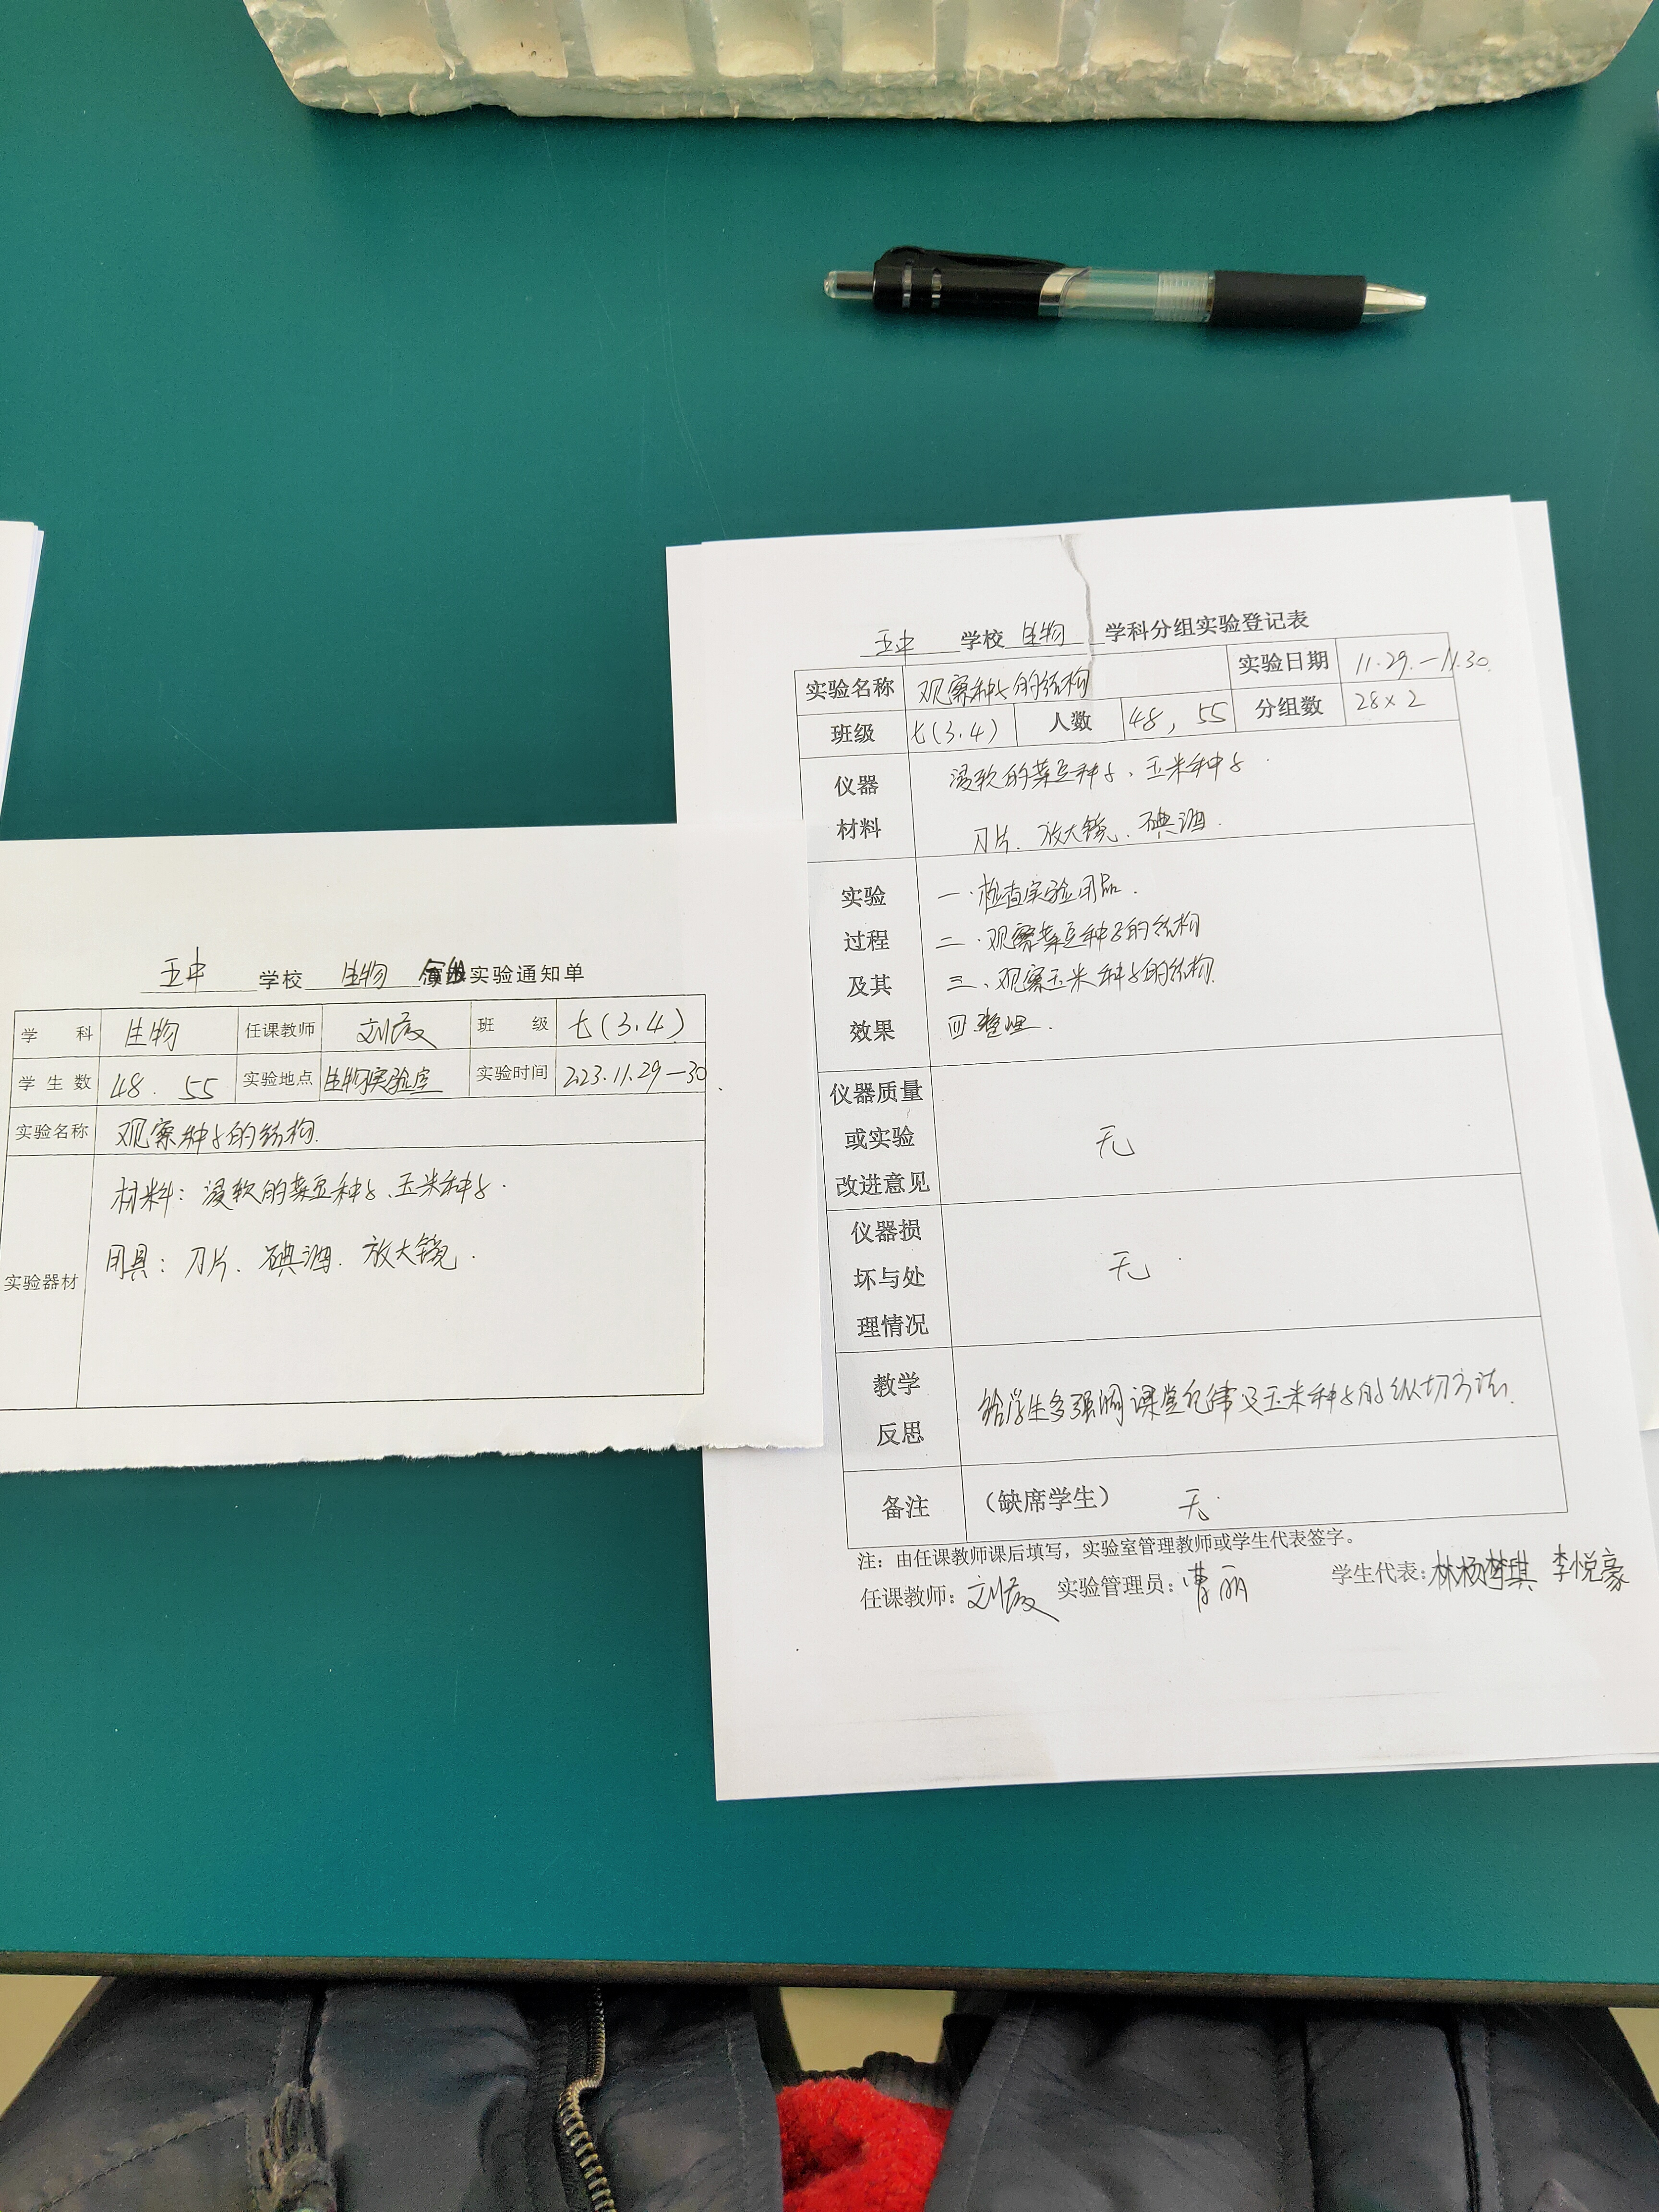 五中 学校 生物 分组实验通知单
学 科 生物 任课教师 刘 班 级 七(3.4)
学 生 数 48. 55 实验地点 生物实验室 实验时间 2023.11.29—30.
实验名称 观察种子的结构.
实验器材
材料: 浸软的菜豆种子、玉米种子.
用具: 刀片、碘酒、放大镜.
五中 学校 生物 学科分组实验登记表
实验名称 观察种子的结构 实验日期 11.29.—11.30.
班级 七(3.4) 人数 48, 55 分组数 28×2
仪器 浸软的菜豆种子、玉米种子.
材料 刀片、放大镜、碘酒.
实验 一.检查实验用品.
过程 二.观察菜豆种子的结构
及其 三、观察玉米种子的结构.
效果 四整理.
仪器质量
或实验 无
改进意见
仪器损
坏与处 无.
理情况
教学
反思
给学生多强调课堂纪律及玉米种子的纵切方法.
备注 (缺席学生) 无.
注: 由任课教师课后填写, 实验室管理教师或学生代表签字。
任课教师: 刘 实验管理员: 曹丽 学生代表: 林杨梦琪 李悦豪